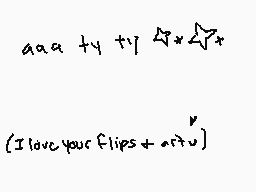 aaa ty ty ☆*☆*
(I love your flips + art u)